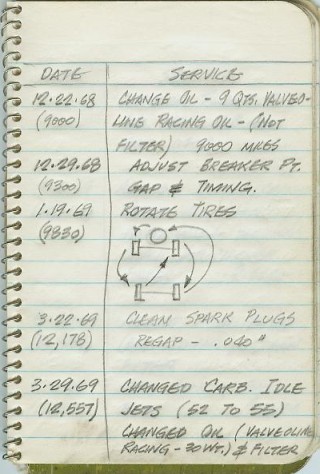 DATE SERVICE
12.22.68 CHANGE OIL - 9 QTS. VALVO-
(9000) LINE RACING OIL - (NOT
FILTER) 9000 MILES
12.29.68 ADJUST BREAKER PT.
(9300) GAP & TIMING.
1.19.69 ROTATE TIRES
(9830)
3.22.69 CLEAN SPARK PLUGS
(12,178) REGAP - .040"
3.29.69 CHANGED CARB. IDLE
(12,557) JETS (52 TO 55)
CHANGED OIL (VALVOLINE
RACING - 30 WT.) & FILTER